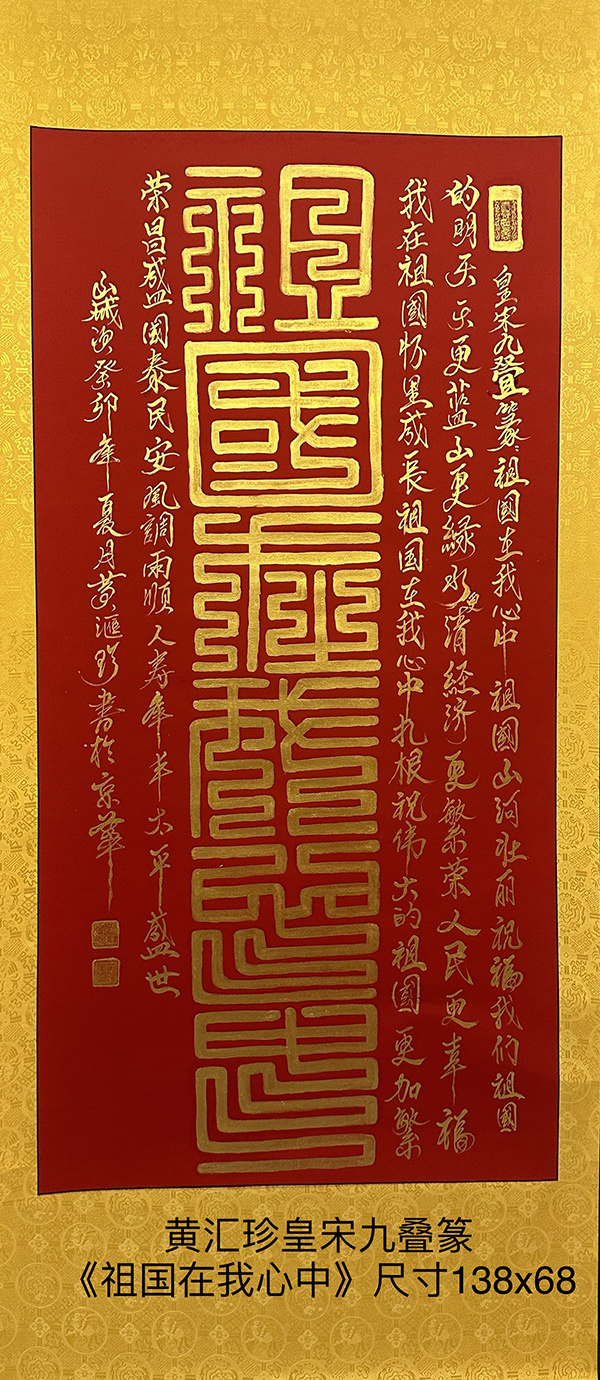 皇宋九叠篆:祖國在我心中祖國山河壮丽祝福我们祖國
的明天天更蓝山更緑水更清经济更繁荣人民更幸福
我在祖國怀里成长祖国在我心中扎根祝伟大的祖国更加繁
祖國在我心中
荣昌盛國泰民安風調雨順人寿年丰太平盛世
歲次癸卯年夏月黄滙珍書於京華
黄汇珍皇宋九叠篆
《祖国在我心中》尺寸138x68